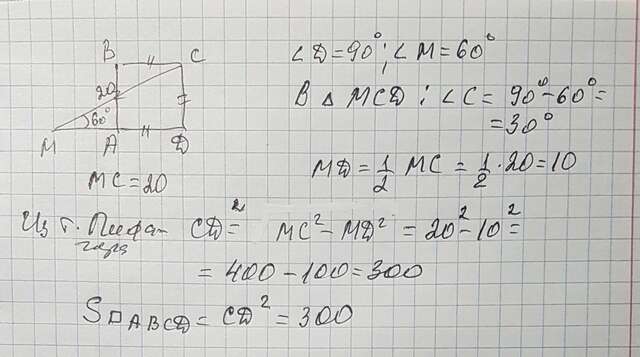 B C
20
60°
M A D
MC = 20
∠D = 90°; ∠M = 60°
В △ MCD: ∠C = 90° - 60° =
= 30°
MD = 1/2 MC = 1/2 · 20 = 10
Из т. Пифа-
гора
CD² = MC² - MD² = 20² - 10² =
= 400 - 100 = 300
S□ABCD = CD² = 300